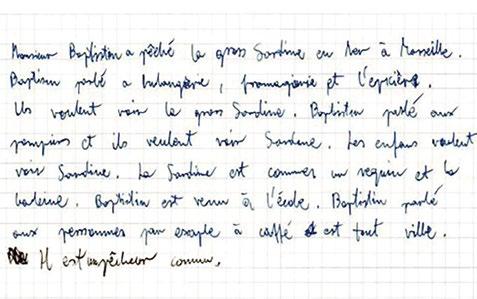 Monsieur Baptistin a pêché la gross Sardine en Mer à Marseille.
Baptisin parlé a bulangerie, fromagerie et l'epicière.
Ils voulent voir la gross Sardine. Baptistin parlé aux
pompiers et ils veulent voir Sardine. Les enfans voulent
voir Sardine. La Sardine est commes un requin et la
baleine. Baptistin est venu à l'école. Baptistin parlé
aux personnnes par exeple à caffé est tout ville.
Il est un pêcheur connu.